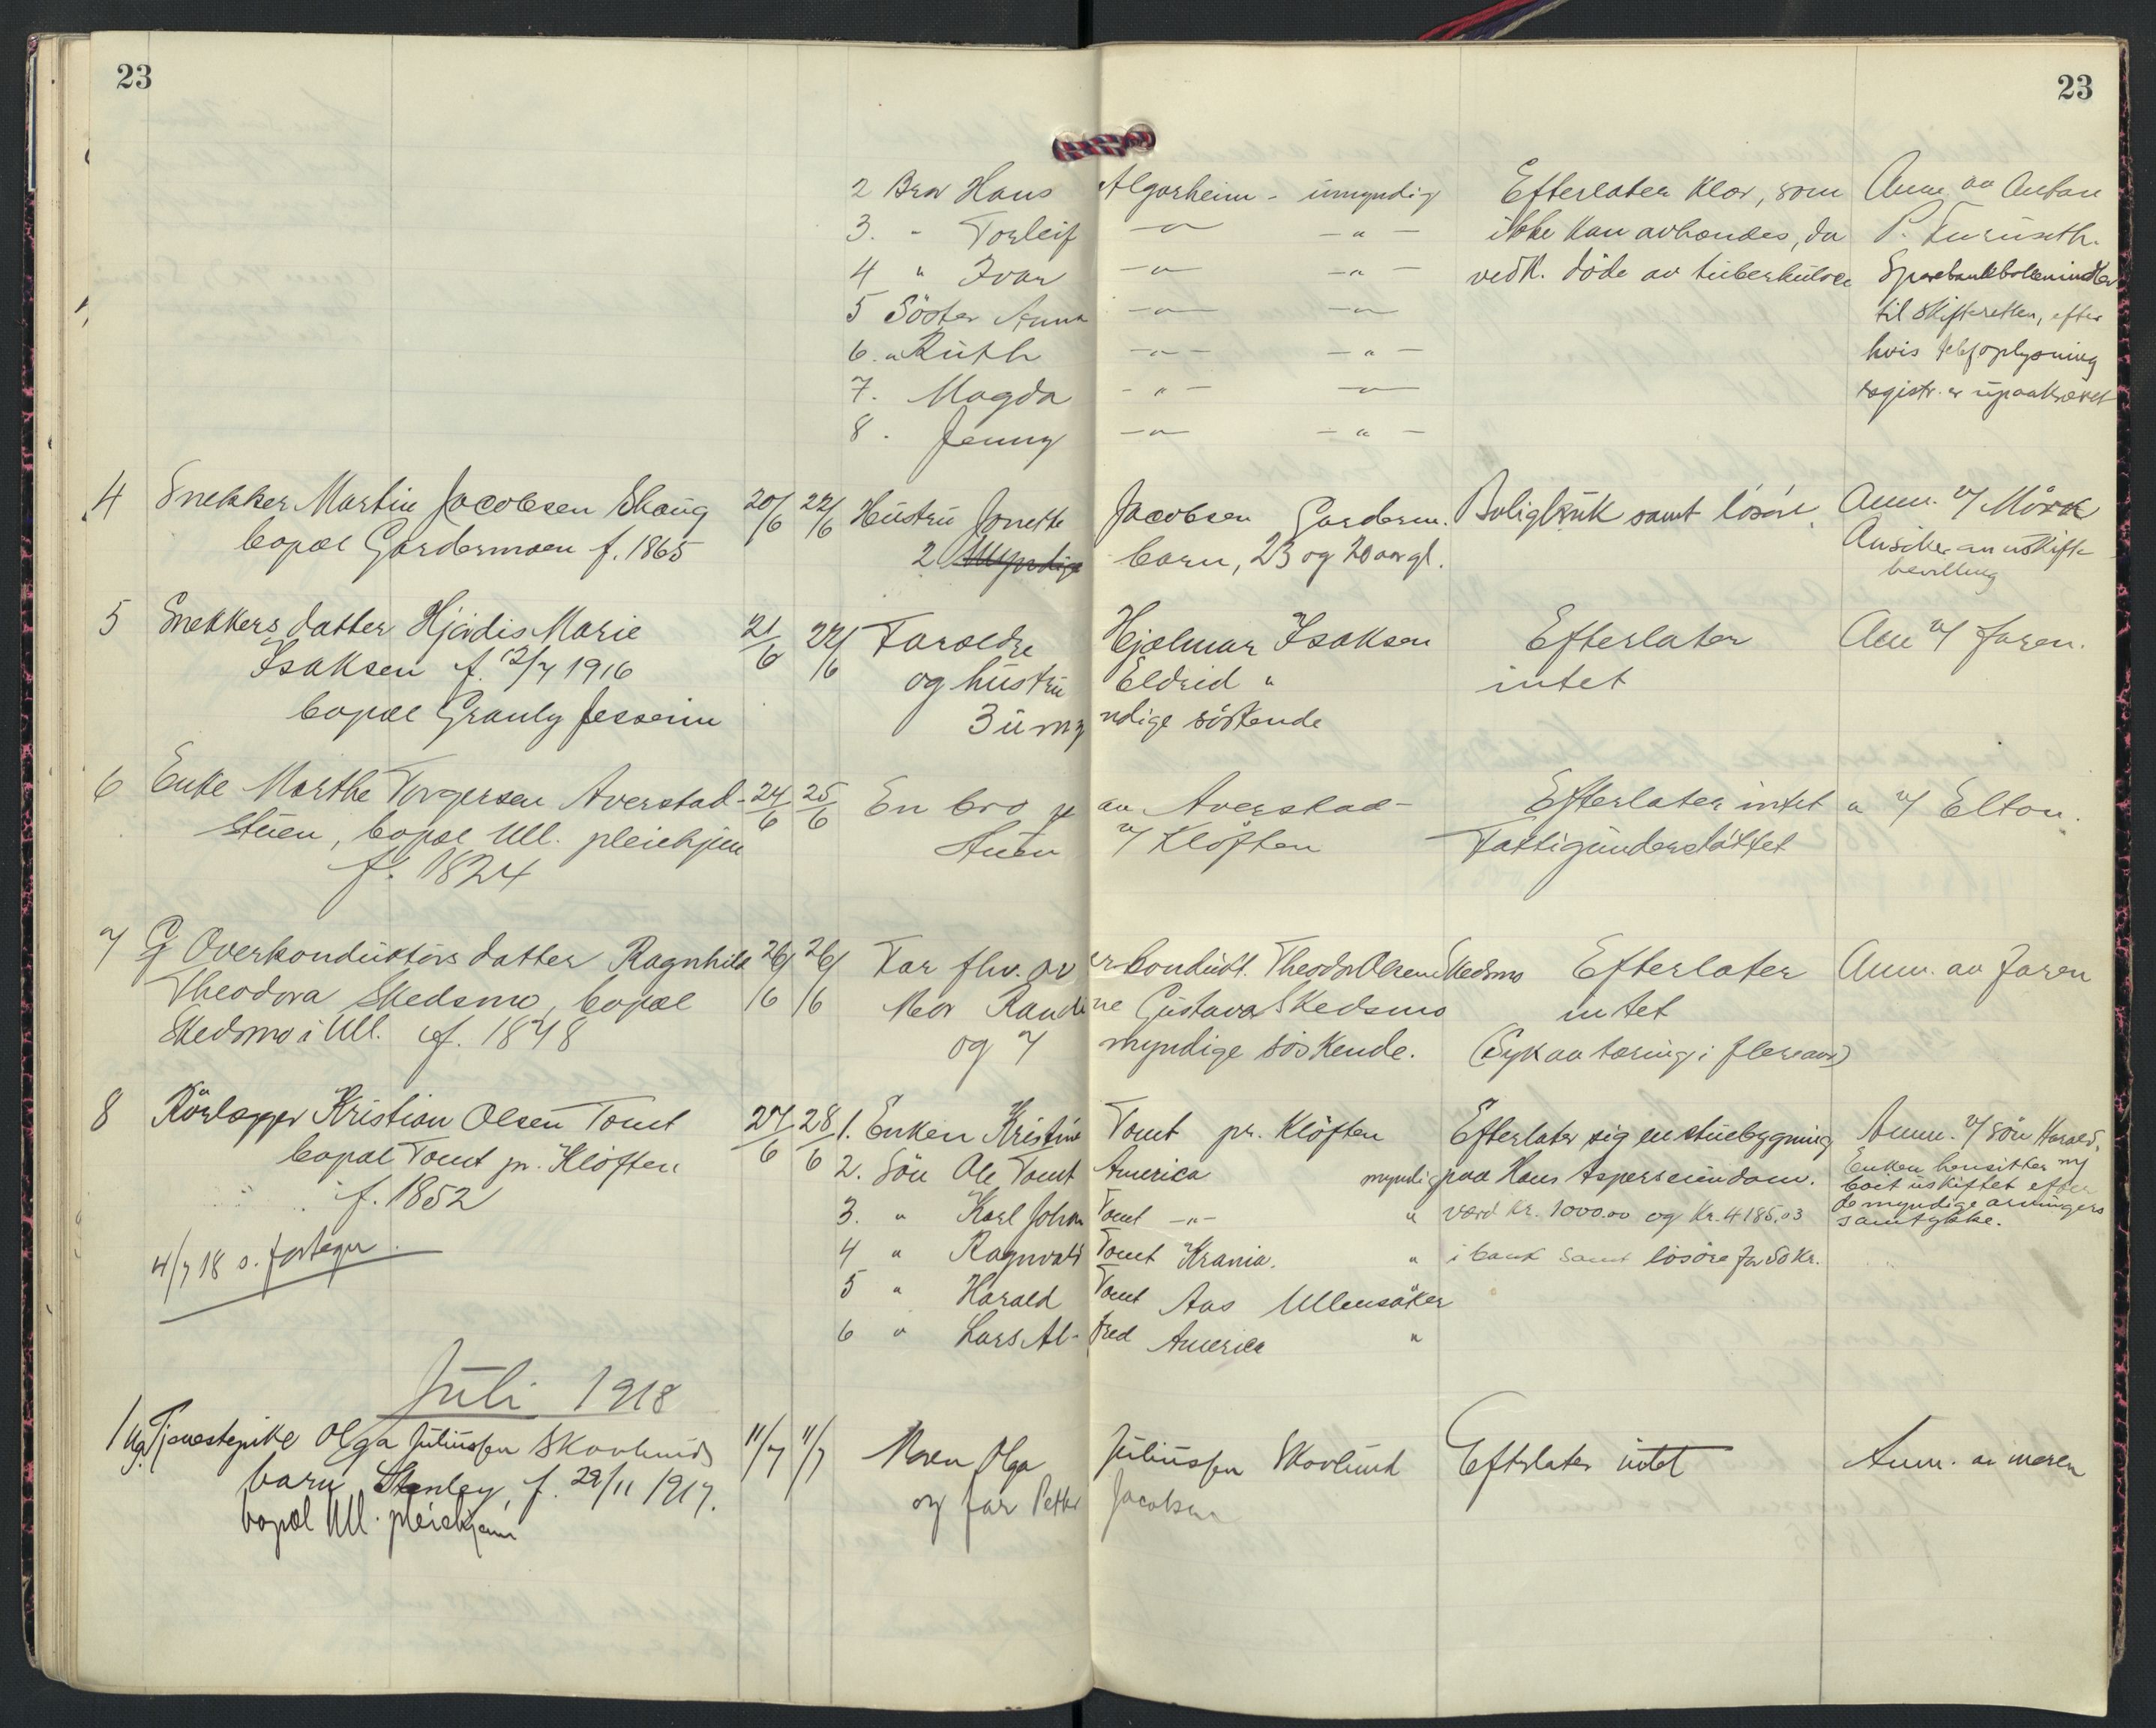 23
23
2 Bror Hans Algarheim - umyndig Efterlater klær, som Anm. av Anton
3. - Torleif -"- -"- ikke kan avhændes, da P. Furuseth.
4 " Ivar -"- -"- vedk. døde av tuberkulose
5 Söster Anna -"- -"- til Skifteretten, efter
6. " Ruth -"- -"- hvis oplysning
7. Magda -"- -"- registr. er upaakrævet
8. Jenny -"- -"-
4 Snekker Martin Jacobsen Skaug 20/6 22/6 Hustru Jonette Jacobsen Garderm. Boligbruk samt løsøre. Anm. v/ Mörk
bopæl Gardermoen f. 1865 2 Myndige barn, 23 og 20 aar gl. Ansöker om uskifte
bevilling
5 Snekkers datter Hjördis Marie 21/6 22/6 Forældre Hjalmar Isaksen Efterlater Anm v/ Jaren.
Isaksen f. 12/7 1916 og hustru Eldrid " intet
bopæl Granly Jessheim 3 umyndige söskende
6 Enke Marthe Torgersen Averstad- 24/6 25/6 En bror paa Averstad- Efterlater intet a v/ Elton.
stuen, bopæl Ull. pleiehjem stuen v/ Klöften Fattigunderstöttet
f. 1824
7 Overkonduktörs datter Ragnhild 26/6 26/6 Far fhv. overkondukt. Theodor Olsen Skedsmo Efterlater Anm. av Jaren
Theodora Skedsmo, bopæl Mor Randine Gustava Skedsmo intet
Skedsmo i Ull. f. 1878 og 7 myndige söskende. (Syk av tæring i flere aar)
8 Rörlægger Kristian Olsen Tomt 27/6 28/6 1. Enken Kristine Tomt pr. Klöften Efterlater sig en stuebygning Anm. v/ sön Harald.
bopæl Tomt pr. Klöften 2. Sön Ole Tomt America myndig paa Hans Aspers eiendom. Enken hensitter m/
f. 1852 3. " Karl Johan Tomt -"- " værd kr. 1000.00 og kr. 4186,03 boet uskiftet efter
de myndige arvingers
samtykke.
4/7 18 s. fortegn. 4 " Ragnvald Tomt Krania. " i bank samt lösöre for 50 kr.
5 " Harald Tomt Aas Ullensaker "
6 " Lars Alfred America "
Juli 1918
1 Ug. Tjenestepike Olga Juliussen Skovlunds 11/7 11/7 Moren Olga Juliussen Skovlund Efterlater intet Anm. av moren
barn Stanley, f. 29/11 1917. og far Petter Jacobsen
bopæl Ull. pleiehjem